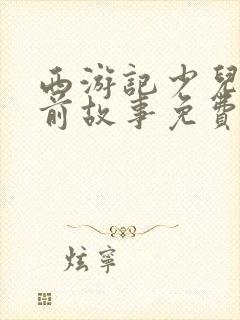 西游記少兒
前故事免費
炫寧